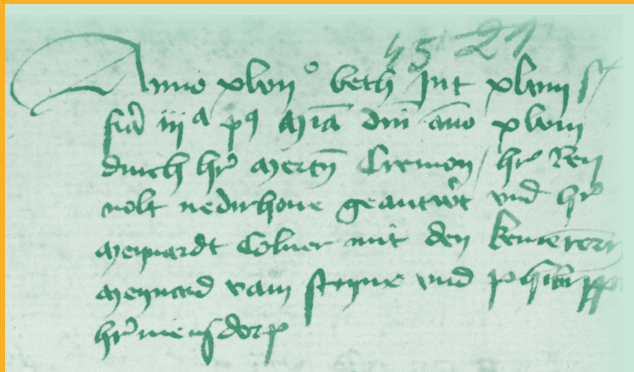 45 27
Anno xlvij° beth Int xlviij
feria iij a p9 Mia dni ano xlviij
durch hr merten Cremon / hr Ren
nolt nedirhoue geantwort vnd hr
meynardt Colner mit den kemerern
meynard vam steyne vnd philipp
hrmensdorp